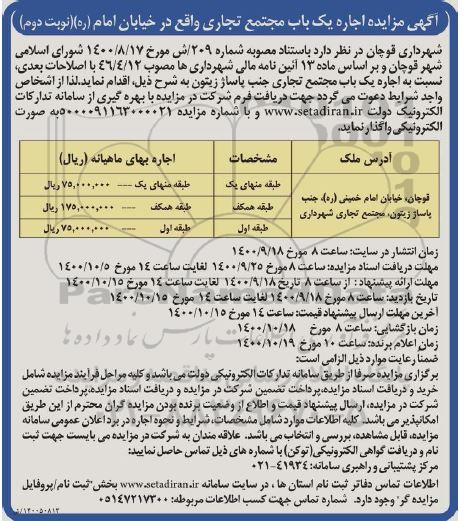 آگهی مزایده اجاره یک باب مجتمع تجاری واقع در خیابان امام (ره)(نوبت دوم)
شهرداری قوچان در نظر دارد باستناد مصوبه شماره ۲۰۹/ش مورخ ۱۴۰۰/۸/۱۷ شورای اسلامی
شهر قوچان و بر اساس ماده ۱۳ آئین نامه مالی شهرداری ها مصوب ۴۶/۴/۱۲ با اصلاحات بعدی،
نسبت به اجاره یک باب مجتمع تجاری جنب پاساژ زیتون به شرح ذیل، اقدام نماید.لذا از اشخاص
واجد شرایط دعوت می گردد جهت دریافت فرم شرکت در مزایده با بهره گیری از سامانه تدارکات
الکترونیک دولت www.setadiran.ir و با شماره مزایده ۵۰۰۰۰۹۱۱۶۳۰۰۰۰۲۱ به صورت
الکترونیکی واگذار نماید.
آدرس ملک مشخصات اجاره بهای ماهیانه (ریال)
قوچان، خیابان امام خمینی (ره)، جنب پاساژ زیتون، مجتمع تجاری شهرداری
طبقه منهای یک طبقه منهای یک ---- ۷۵,۰۰۰,۰۰۰ ریال
طبقه همکف طبقه همکف ---- ۱۷۵,۰۰۰,۰۰۰ ریال
طبقه اول طبقه اول ---- ۷۵,۰۰۰,۰۰۰ ریال
زمان انتشار در سایت: ساعت ۸ مورخ ۱۴۰۰/۹/۱۸
مهلت دریافت اسناد مزایده: ساعت ۸ مورخ ۱۴۰۰/۹/۲۵ لغایت ساعت ۱۴ مورخ ۱۴۰۰/۱۰/۵
مهلت ارائه پیشنهاد: از ساعت ۸ تاریخ ۱۴۰۰/۹/۱۸ لغایت ساعت ۱۴ مورخ ۱۴۰۰/۱۰/۱۵
تاریخ بازدید: ساعت ۸ مورخ ۱۴۰۰/۹/۱۸ لغایت ساعت ۱۴ مورخ ۱۴۰۰/۱۰/۱۵
آخرین مهلت ارسال پیشنهاد قیمت: ساعت ۱۴ مورخ ۱۴۰۰/۱۰/۱۵
زمان بازگشایی: ساعت ۸ مورخ ۱۴۰۰/۱۰/۱۸
زمان اعلام برنده: ساعت ۱۰ مورخ ۱۴۰۰/۱۰/۱۹
ضمنا رعایت موارد ذیل الزامی است:
برگزاری مزایده صرفا از طریق سامانه تدارکات الکترونیکی دولت می باشد و کلیه مراحل فرایند مزایده شامل
خرید و دریافت اسناد مزایده، پرداخت تضمین شرکت در مزایده و دریافت اسناد مزایده، پرداخت تضمین
شرکت در مزایده، ارسال پیشنهاد قیمت و اطلاع از وضعیت برنده بودن مزایده گران محترم از این طریق
امکانپذیر می باشد. کلیه اطلاعات موارد شامل مشخصات، شرایط و نحوه اجاره در برد اعلان عمومی سامانه
مزایده، قابل مشاهده، بررسی و انتخاب می باشد. علاقه مندان به شرکت در مزایده می بایست جهت ثبت
نام و دریافت گواهی الکترونیکی(توکن) با شماره های ذیل تماس حاصل نمایید:
مرکز پشتیبانی و راهبری سامانه: ۴۱۹۳۴-۰۲۱
اطلاعات تماس دفاتر ثبت نام استان ها ، در سایت سامانه www.setadiran.ir بخش"ثبت نام/پروفایل
مزایده گر" وجود دارد. شماره تماس جهت کسب اطلاعات مربوطه: ۰۵۱۴۷۲۱۷۳۰۰